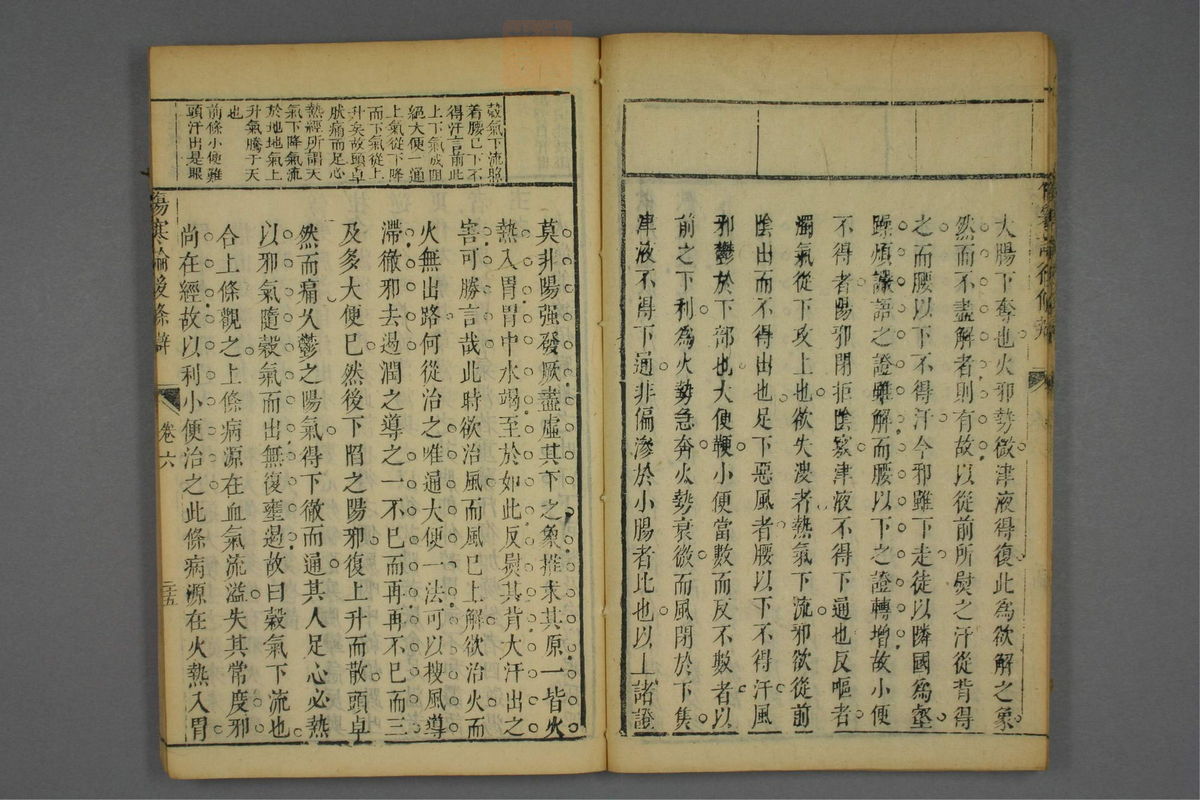 大腸下奪也火邪勢微津液得復此為欲解之象
然而不盡解者則有故以從前所熨之汗從背得
之而腰以下不得汗今邪雖下走徒以隣國為壑
躁煩譫語之證雖解而腰以下之證轉增故小便
不得者陽邪閉拒陰竅津液不得下通也反嘔者
濁氣從下攻上也欲失溲者熱氣下流邪欲從前
陰出而不得出也足下惡風者腰以下不得汗風
邪鬱於下部也大便鞕小便當數而反不數者以
前之下利為火勢急奔火勢衰微而風閉於下焦
津液不得下通非偏滲於小腸者比也以上諸證
傷寒論後條辯
莫非陽强發厥盡虛其下之象推求其原一皆火
熱入胃胃中水竭至於如此反熨其背大汗出之
害可勝言哉此時欲治風而風已上解欲治火而
火無出路何從治之唯通大便一法可以搜風導
滯徹邪去過潤之導之一不已而再再不已而三
及多大便已然後下陷之陽邪復上升而散頭卓
然而痛久鬱之陽氣得下徹而通其人足心必熱
以邪氣隨穀氣而出無復壅遏故曰穀氣下流也
合上條觀之上條病源在血氣流溢失其常度邪
尚在經故以利小便治之此條病源在火熱入胃
穀氣下流照
着腰已下不
得汗言前此
上下氣成阻
絕大便一通
上氣從下降
而下氣從上
升矣故頭卓
然痛而足心
熱經所謂天
氣下降氣流
於地地氣上
升氣騰于天
也
前條小便難
頭汗出是眼
傷寒論後條辯
卷六
三五